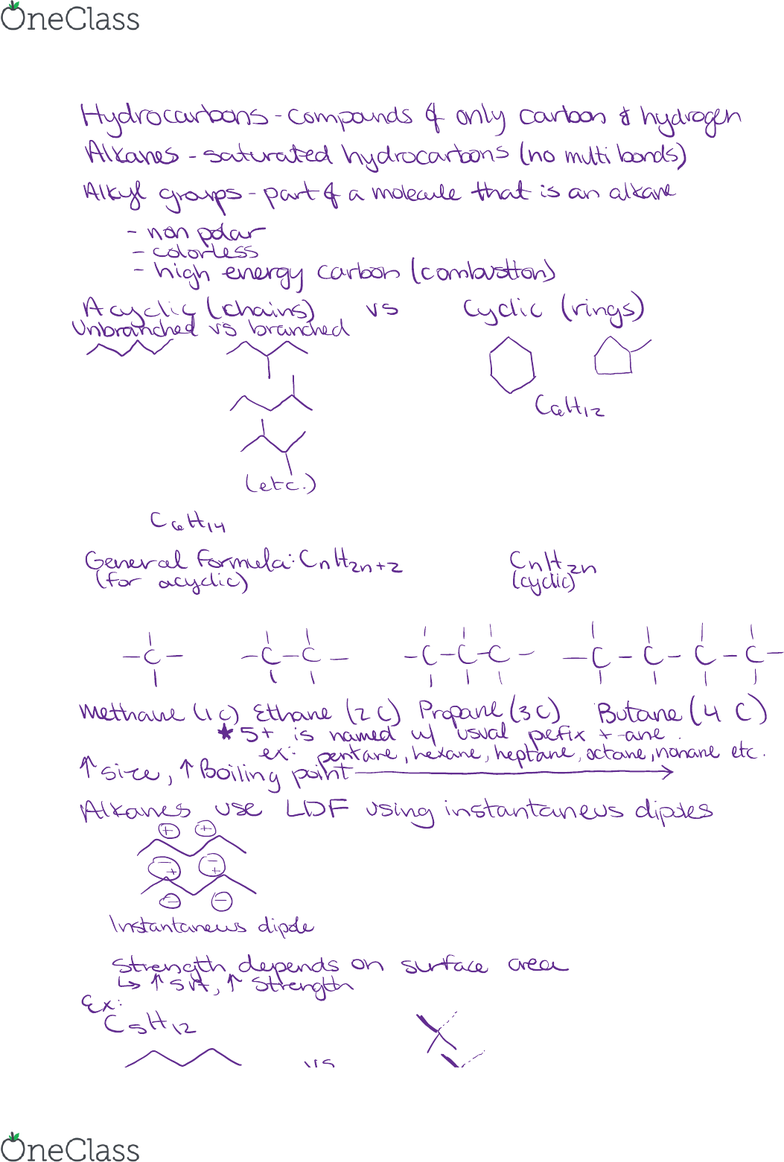 OneClass
Hydrocarbons - compounds of only carbon & hydrogen
Alkanes - saturated hydrocarbons (no multi bonds)
Alkyl groups - part of a molecule that is an alkane
- non polar
- colorless
- high energy carbon (combustion)
Acyclic (chains) vs Cyclic (rings)
Unbranched vs branched
C6H12
(etc.)
C6H14
General formula: CnH2n+2 CnH2n
(for acyclic) (cyclic)
-C- -C-C- -C-C-C- -C-C-C-C-
Methane (1C) Ethane (2C) Propane (3C) Butane (4 C)
* 5+ is named w/ usual pefix + -ane.
ex: pentane, hexane, heptane, octane, nonane etc.
↑ size, ↑ Boiling point
Alkanes use LDF using instantaneus dipoles
+ +
- + - +
- -
Instantaneus dipole
Strength depends on surface area
↳ ↑ SA, ↑ Strength
Ex:
C5H12
vs
OneClass